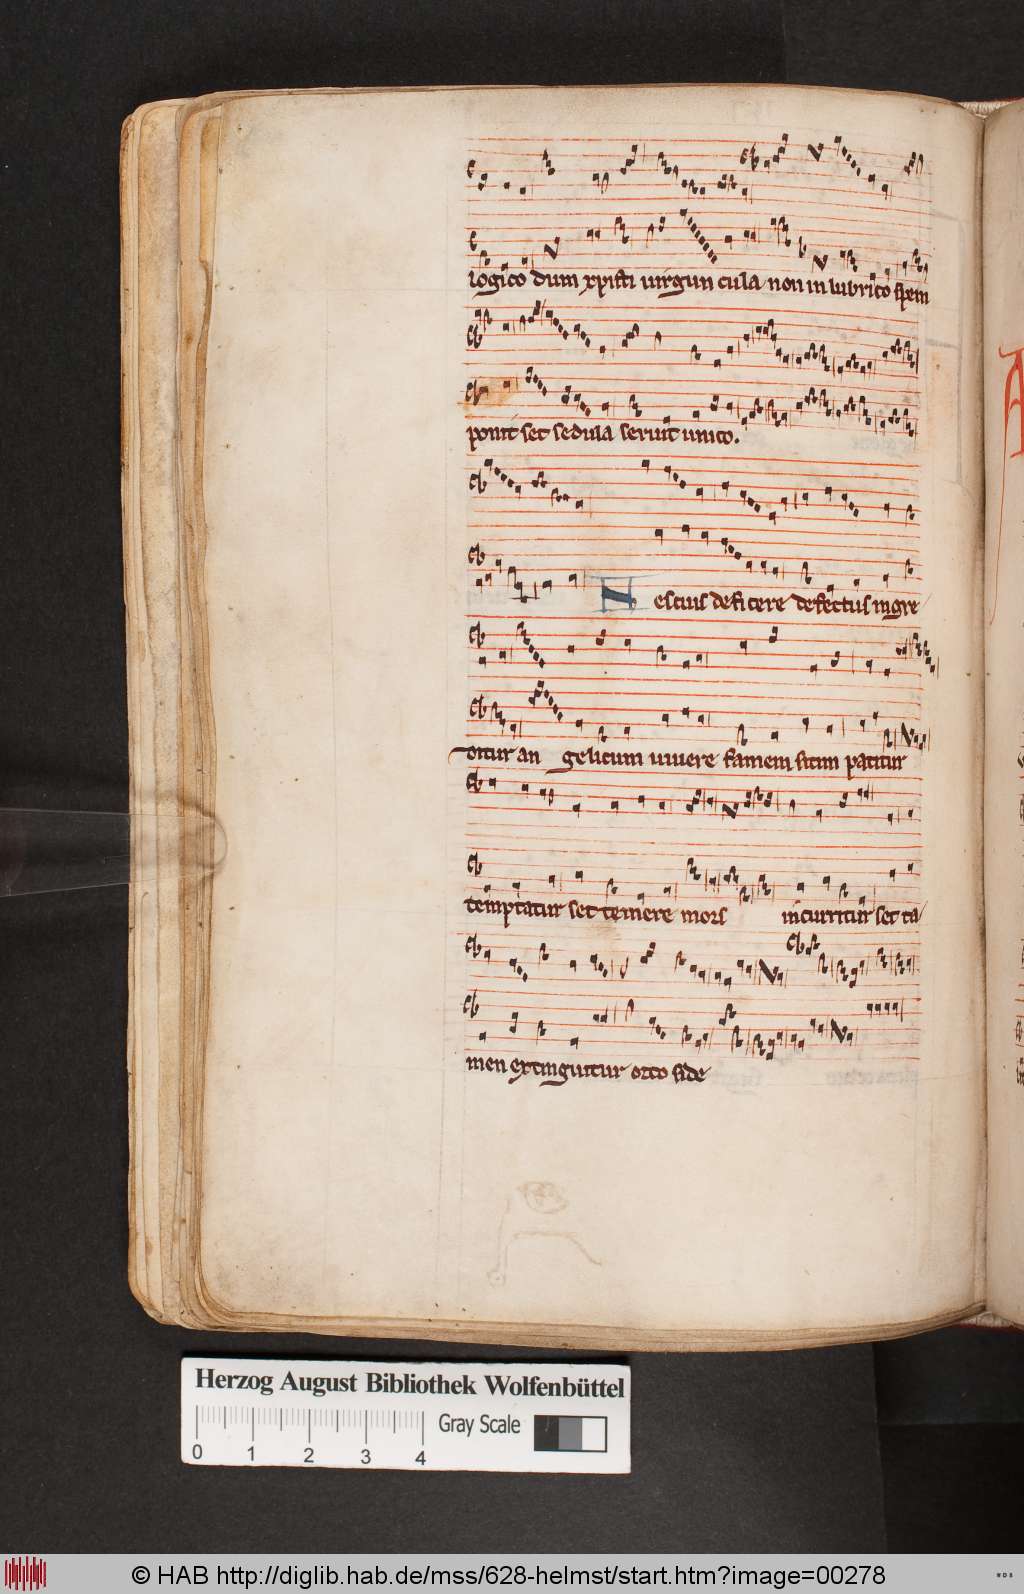 logico dum xpisti uirgun cula non in lubrico spem
ponit set sedula seruit unico.
Nescius deficere defectus ingre
ditur an gelicum uiuere famem sitim patitur
temptatur set temere mors incurritur set ta
men extinguitur orto side
Herzog August Bibliothek Wolfenbüttel
Gray Scale
0 1 2 3 4
© HAB http://diglib.hab.de/mss/628-helmst/start.htm?image=00278